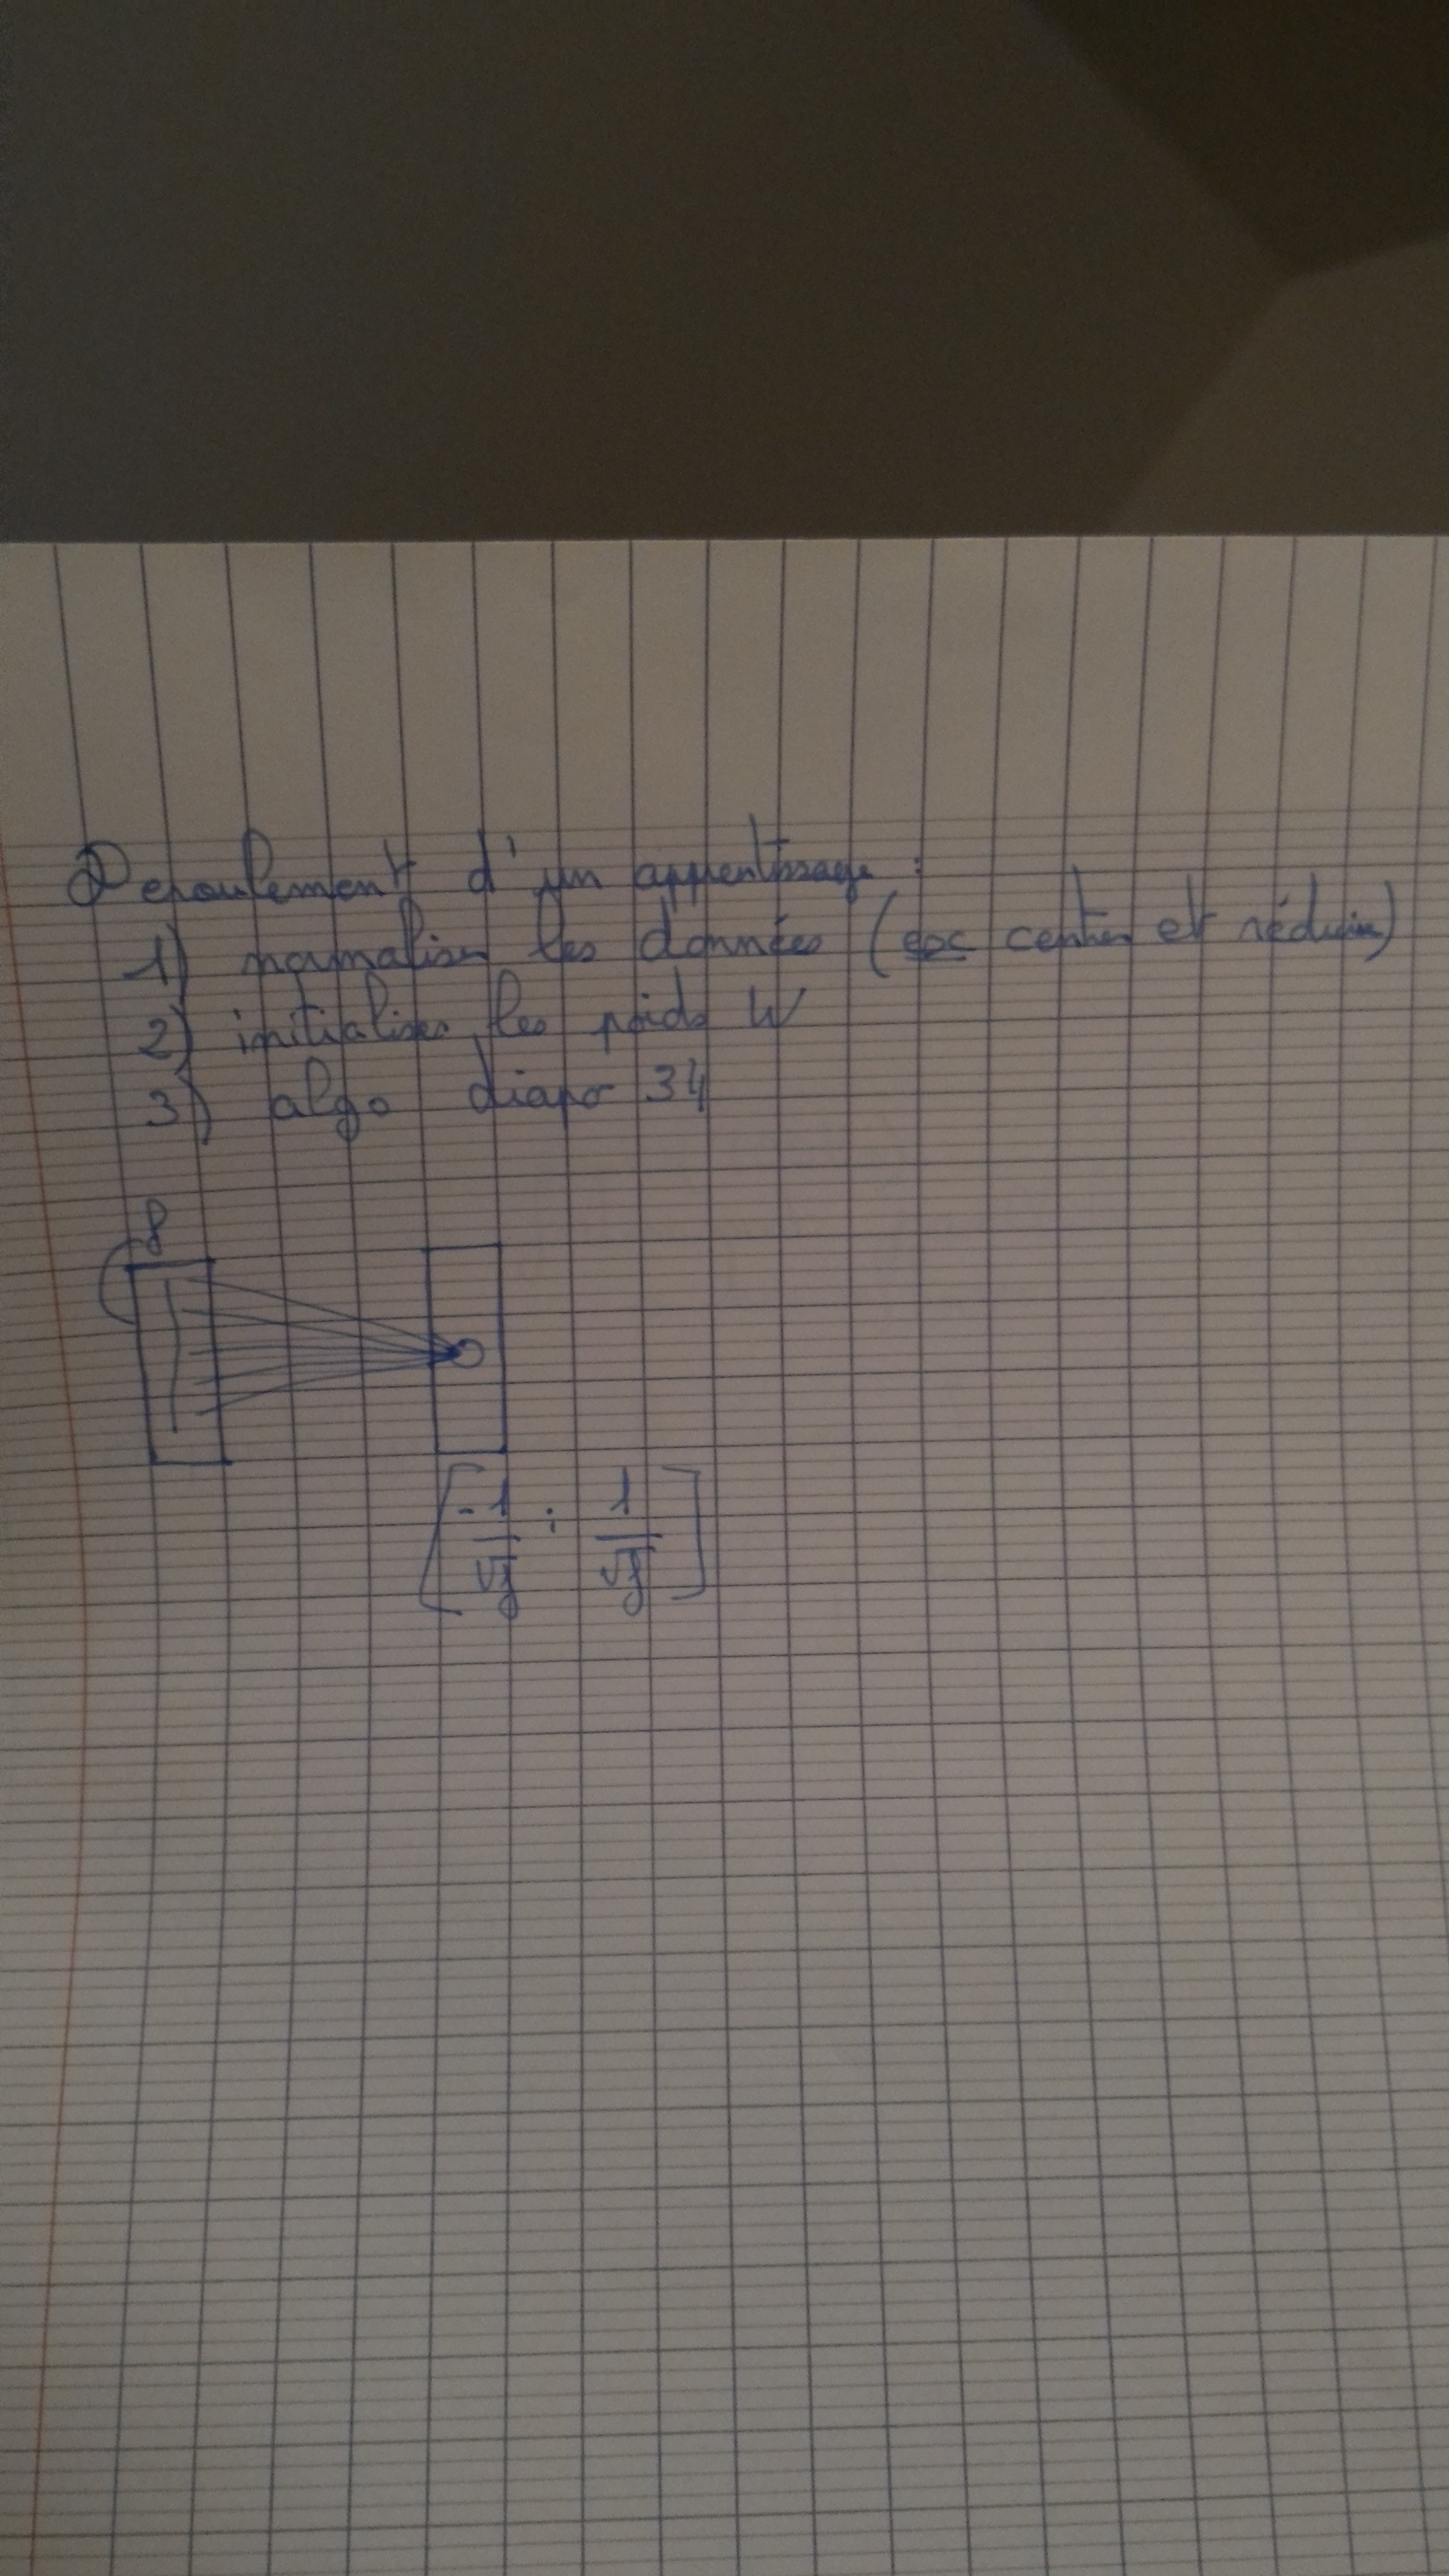 Deroulement d'un apprentissage :
1) normaliser les données (centrer et réduire)
2) initialiser les poids W
3) algo diapo 34
8
[-1/√8 ; 1/√8]